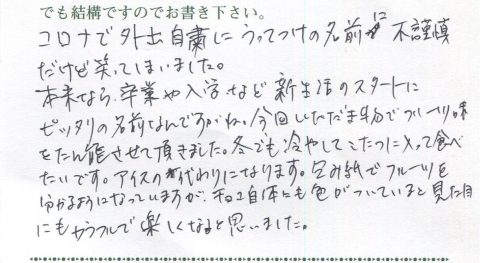 でも結構ですのでお書き下さい。
コロナで外出自粛にうってつけの名前に不謹慎
だけど笑ってしまいました。
本来なら、卒業や入学など新生活のスタートに
ピッタリの名前なんですがね。今回いただいた分でフルーツ味
をたん能させて頂きました。冬でも冷やしてこたつに入って食べ
たいです。アイスの代わりになります。包み紙でフルーツを
分かるようになっていますが、チョコ自体にも色がついていると見た目
にもカラフルで楽しくなると思いました。